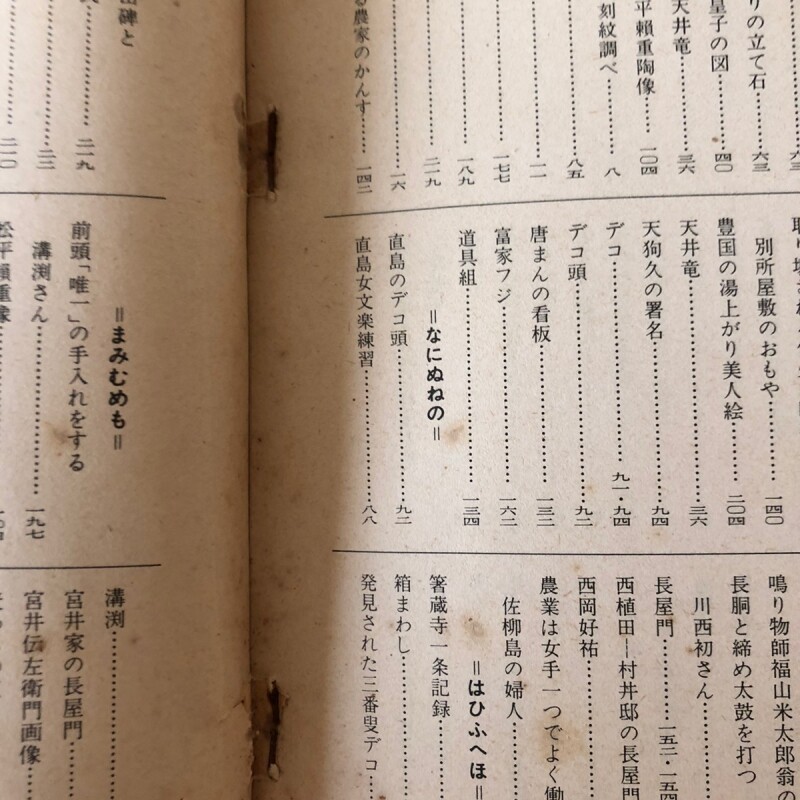 りの立て石……六三
皇子の図……四〇
天井竜……三六
平頼重陶像……一〇四
刻紋調べ……八
……八五
……一一
……一七七
……一八九
……二一九
……一六
る農家のかんす……一四二
別所屋敷のおもや……一四〇
豊国の湯上がり美人絵……二〇四
天井竜……三六
天狗久の署名……九四
デコ……九一・九四
デコ頭……九二
唐まんの看板……一三二
富家フジ……一六二
道具組……一三四
＝なにぬねの＝
直島のデコ頭……九二
直島女文楽練習……八八
鳴り物師福山米太郎翁の
長胴と締め太鼓を打つ
川西初さん……
長屋門……一五二・一五四
西植田―村井邸の長屋門
西岡好祐……
農業は女手一つでよく働
佐柳島の婦人……
＝はひふへほ＝
箸蔵寺一条記録……
箱まわし……
発見された三番叟デコ……
碑と
……二一九
……二二
……二一〇
＝まみむめも＝
前頭「唯一」の手入れをする
溝渕さん……一九七
松平頼重像……一〇四
溝渕……
宮井家の長屋門……
宮井伝左衛門画像……